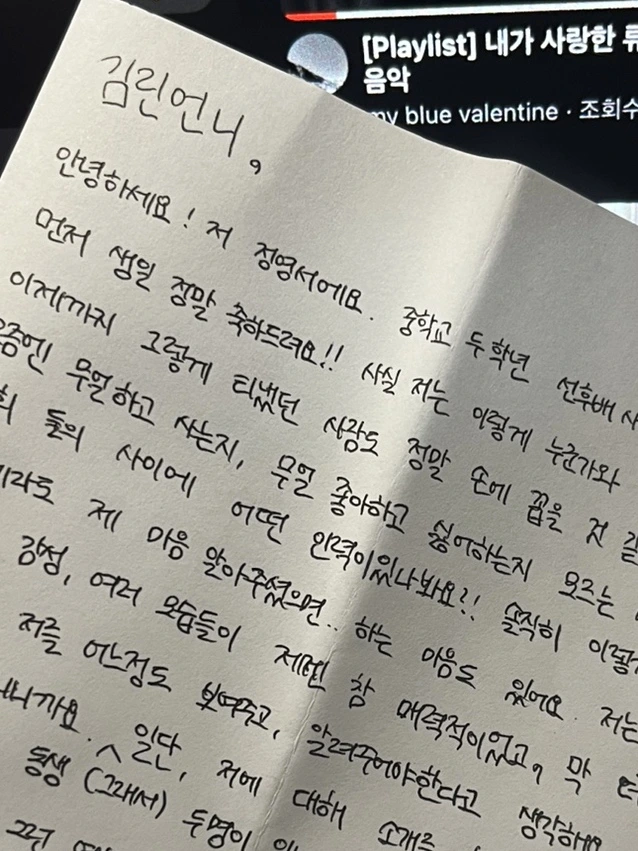 [Playlist] 내가 사랑한
음악
my blue valentine · 조회수
김린언니,
안녕하세요! 저 정영서에요. 중학교 두 학년 선후배
먼저 생일 정말 축하드려요!! 사실 저는 이렇게 누군가와
이제까지 그렇게 티냈던 사람도 정말 손에 꼽을 것
요즘엔 무얼하고 사는지, 무얼 좋아하고 싫어하는지 모르는
둘의 사이에 어떤 인력이있나봐요?! 솔직히
제 마음 알아주셨으면.. 하는 마음도 있어요. 저는
감성, 여러 모습들이 제겐 참 매력적이었고, 막
저를 어느정도 보여주고, 알려주어야한다고 생각해요
일단, 저에 대해 소개를
동생 (그래서) 두명이